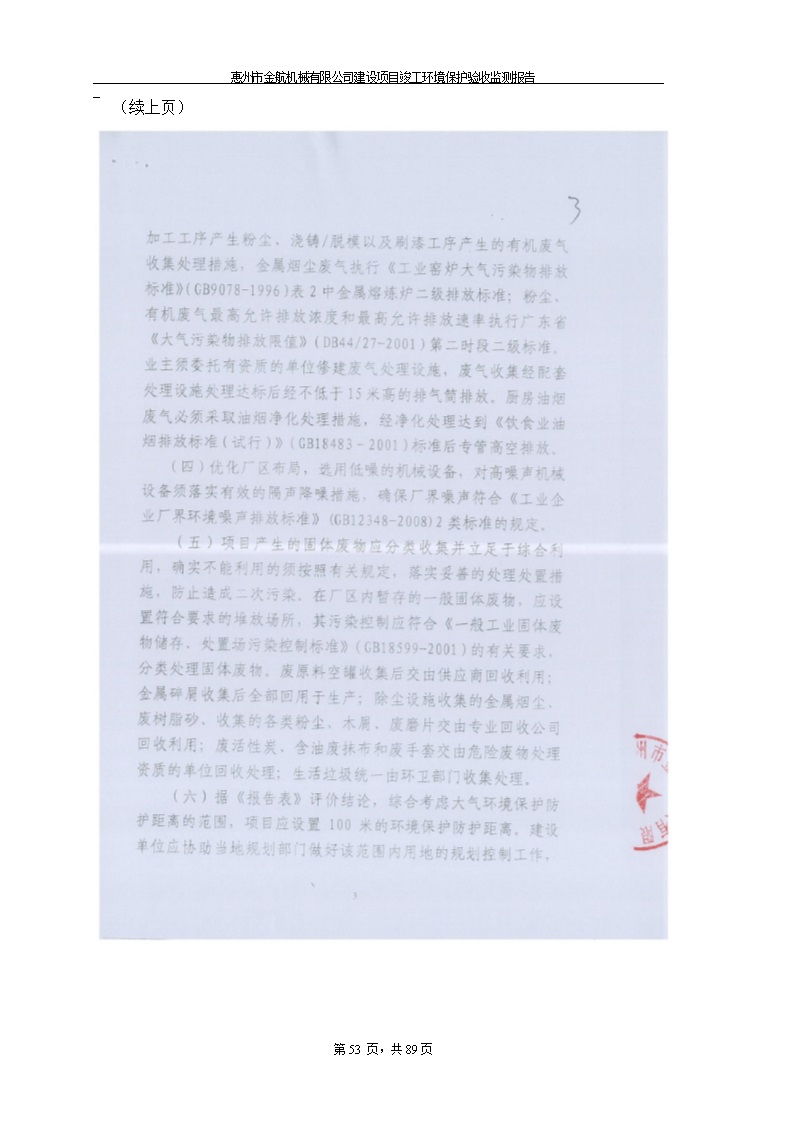 惠州市金航机械有限公司建设项目竣工环境保护验收监测报告
（续上页）
3
加工工序产生粉尘、浇铸/脱模以及刷漆工序产生的有机废气
收集处理措施，金属烟尘废气执行《工业窑炉大气污染物排放
标准》（GB9078-1996）表2中金属熔炼炉二级排放标准；粉尘、
有机废气最高允许排放浓度和最高允许排放速率执行广东省
《大气污染物排放限值》（DB44/27-2001）第二时段二级标准。
业主须委托有资质的单位修建废气处理设施，废气收集经配套
处理设施处理达标后经不低于15米高的排气筒排放。厨房油烟
废气必须采取油烟净化处理措施，经净化处理达到《饮食业油
烟排放标准（试行）》（GB18483－2001）标准后专管高空排放。
（四）优化厂区布局，选用低噪的机械设备，对高噪声机械
设备须落实有效的隔声降噪措施，确保厂界噪声符合《工业企
业厂界环境噪声排放标准》（GB12348-2008）2类标准的规定。
（五）项目产生的固体废物应分类收集并立足于综合利
用，确实不能利用的须按照有关规定，落实妥善的处理处置措
施，防止造成二次污染。在厂区内暂存的一般固体废物，应设
置符合要求的堆放场所，其污染控制应符合《一般工业固体废
物储存、处置场污染控制标准》（GB18599-2001）的有关要求。
分类处理固体废物。废原料空罐收集后交由供应商回收利用；
金属碎屑收集后全部回用于生产；除尘设施收集的金属烟尘、
废树脂砂、收集的各类粉尘、木屑、废磨片交由专业回收公司
回收利用；废活性炭、含油废抹布和废手套交由危险废物处理
资质的单位回收处理；生活垃圾统一由环卫部门收集处理。
（六）据《报告表》评价结论，综合考虑大气环境保护防
护距离的范围，项目应设置100米的环境保护防护距离。建设
单位应协助当地规划部门做好该范围内用地的规划控制工作。
3
州市
有限
第 53 页，共 89 页